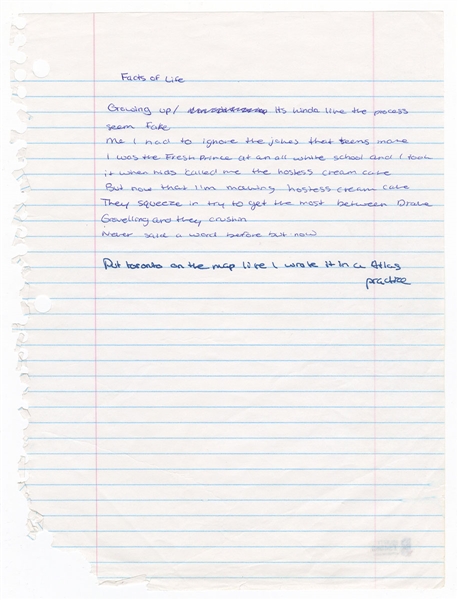 Facts of Life
Growing up/ its kinda like the process
seem fake
Me I had to ignore the jokes that teens make
I was the Fresh Prince at an all white school and I took
it when kids called me the hostess cream cake
But now that I'm making hostess cream cake
They squeeze in try to get the most between Drake
Govelling and they crushin
Never said a word before but now
Put toronto on the map like I wrote it in a Atlas
practice